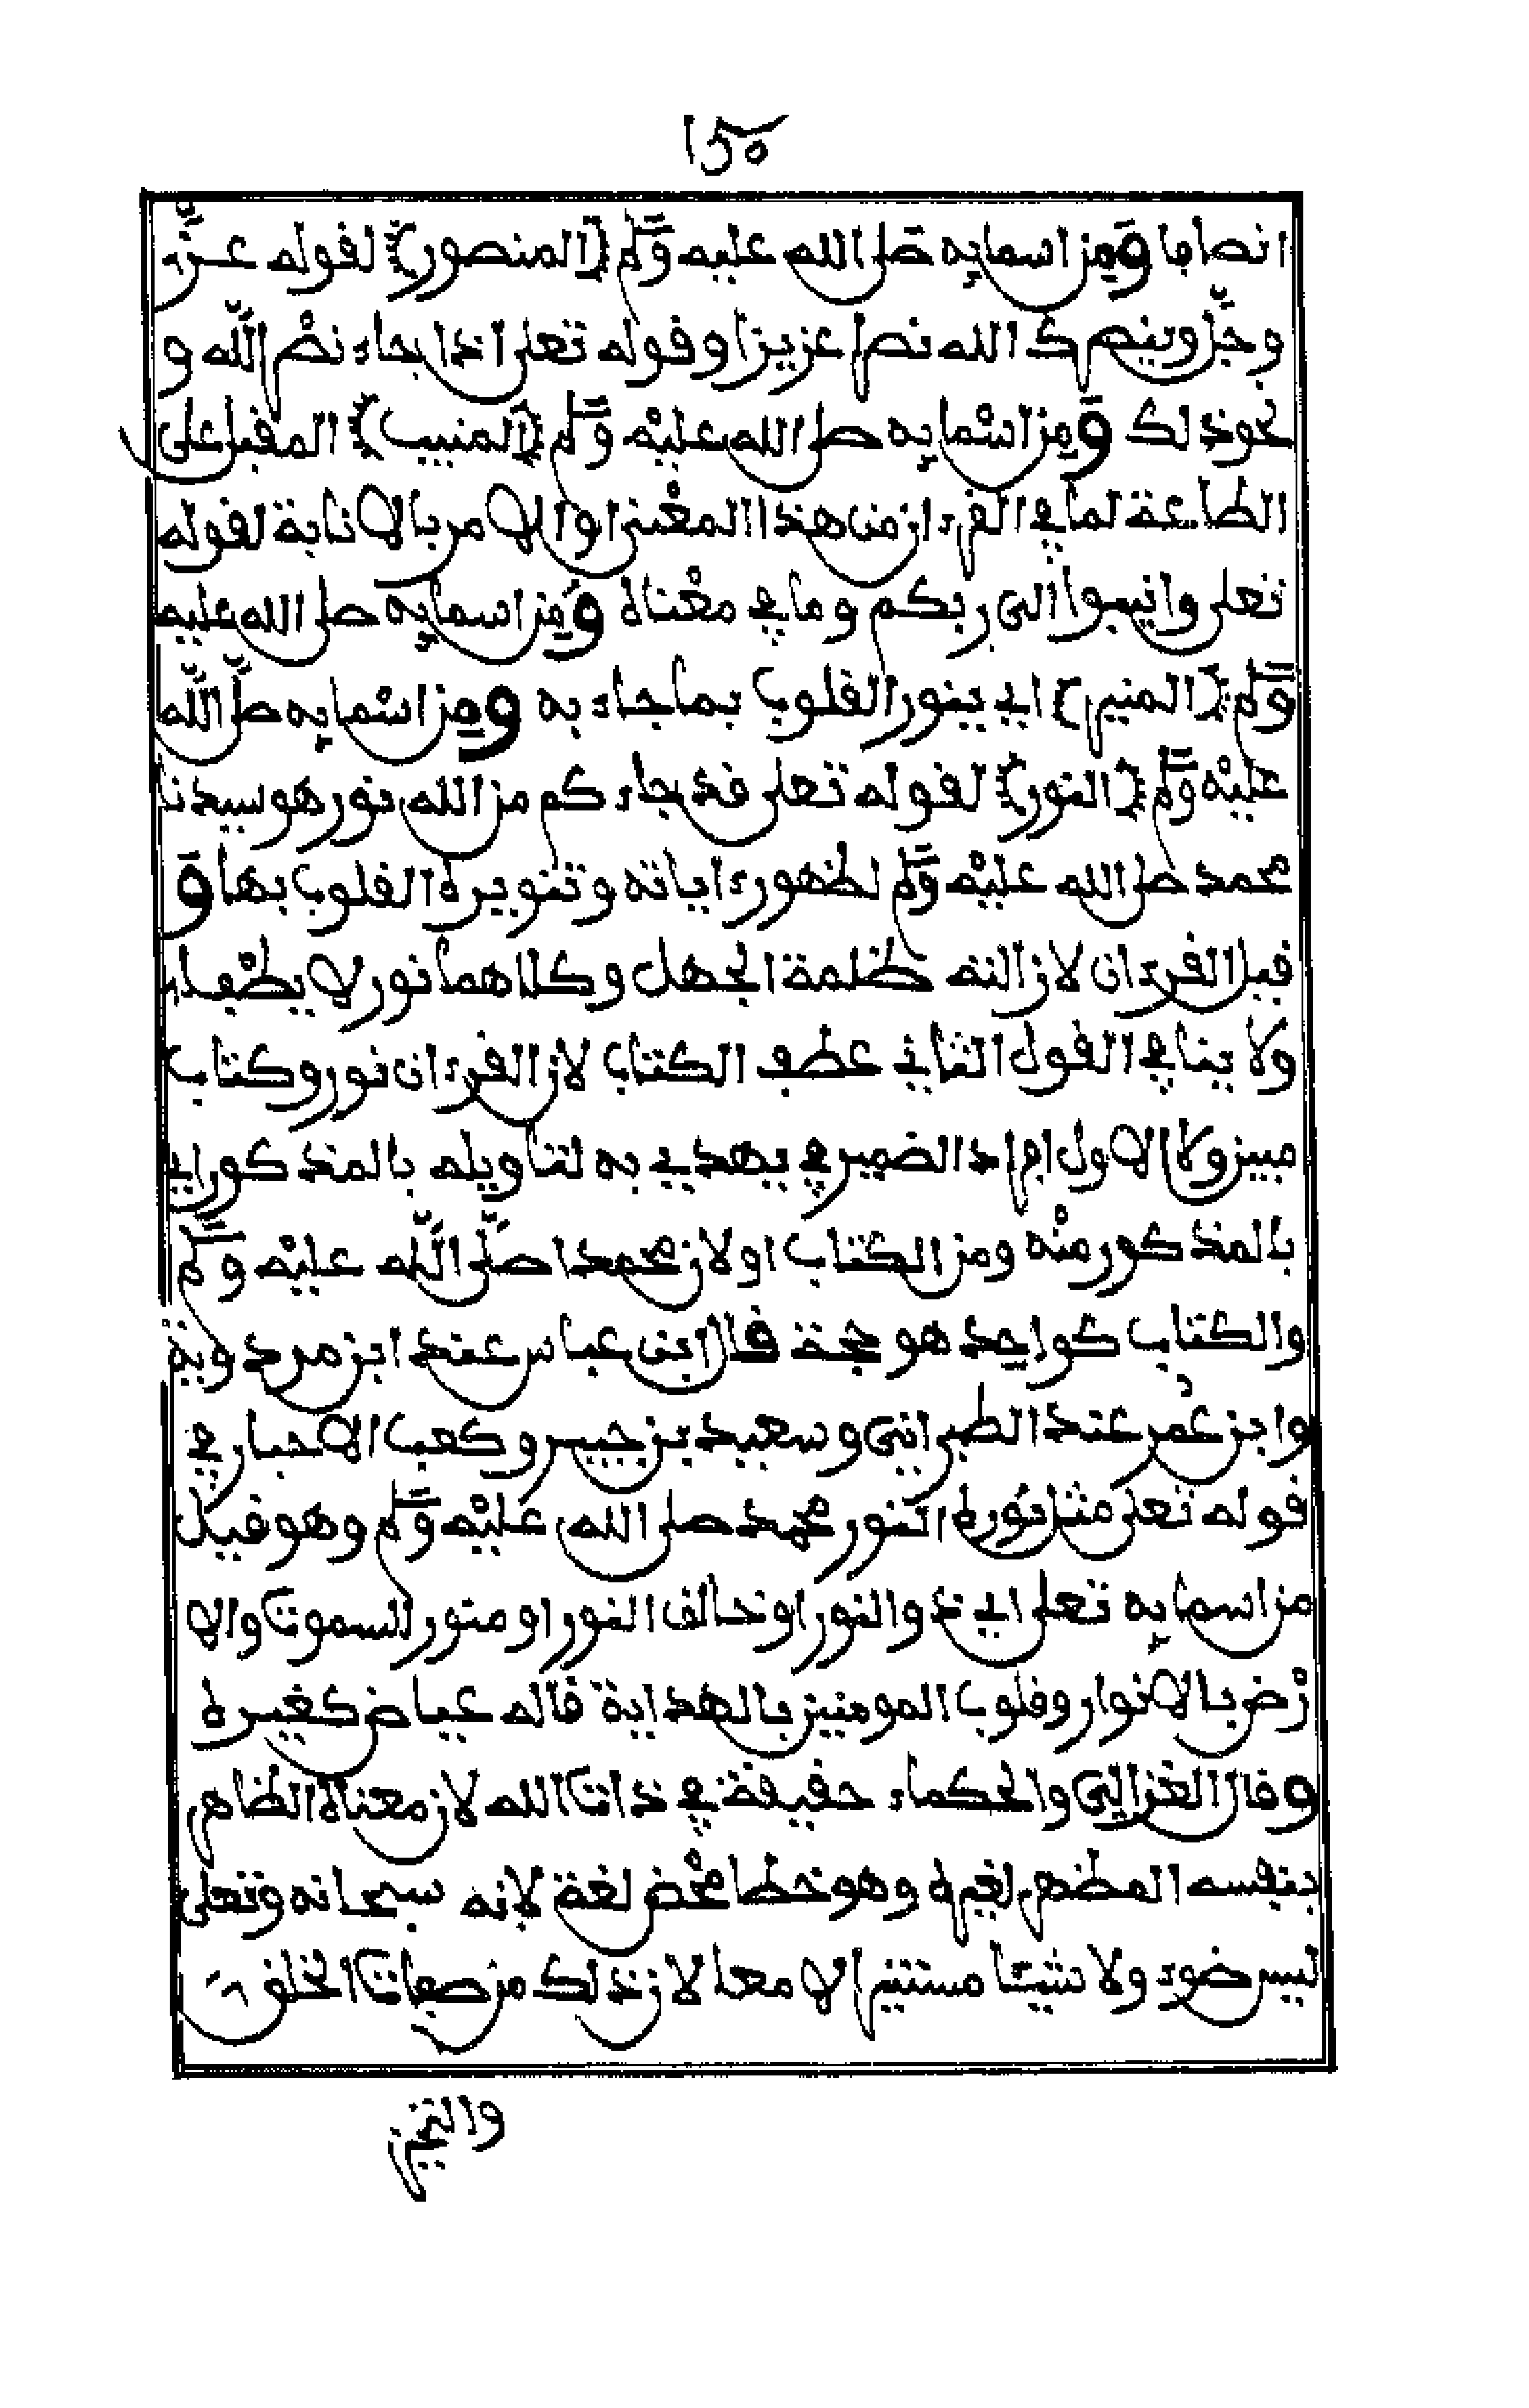 150
انصابا ومن اسمايه صلى الله عليه وسلم (المنصور) لقوله عز
وجل وينصرك الله نصرا عزيزا وقوله تعلى اذا جاء نصر الله و
نحو ذلك ومن اسمايه صلى الله عليه وسلم (المنيب) المقبل على
الطاعة لما في القرءان من هذا المعنى او الامر بالانابة لقوله
تعلى وانيبوا الى ربكم وما في معناه ومن اسمايه صلى الله عليه
وسلم (المنير) اي ينور القلوب بما جاء به ومن اسمايه صلى الله
عليه وسلم (النور) لقوله تعلى قد جاءكم من الله نور هو سيدنا
محمد صلى الله عليه وسلم لظهور ءاياته وتنويره القلوب بها و
قيل القرءان لازالته ظلمة الجهل وكلاهما نور لا يطفا
ولا ينافي القول الثاني عطف الكتاب لان القرءان نور وكتاب
مبين ولا الاول افراد الضمير في يهدي به لتاويله بالمذكور اي
بالمذكور منه ومن الكتاب اولان محمدا صلى الله عليه وسلم
والكتاب كواحد هو حجة قال ابن عباس عند ابن مردوية
وابن عمر عند الطبراني وسعيد بن جبير وكعب الاحبار في
قوله تعلى مثل نوره النور محمد صلى الله عليه وسلم وهو قيل
من اسمايه تعلى اي ذو النور او خالق النور او منور السموت والا
رض بالانوار وقلوب المومنين بالهداية قاله عياض كغيره
وقال الغزالي والحكماء حقيقة في ذات الله لان معناه الظاهر
بنفسه المظهر لغيره وهو خطا محض لغة لانه سبحانه وتعلى
ليس ضوء ولا شيئا مستنيرا لا معا لان ذلك من صفات الخلق